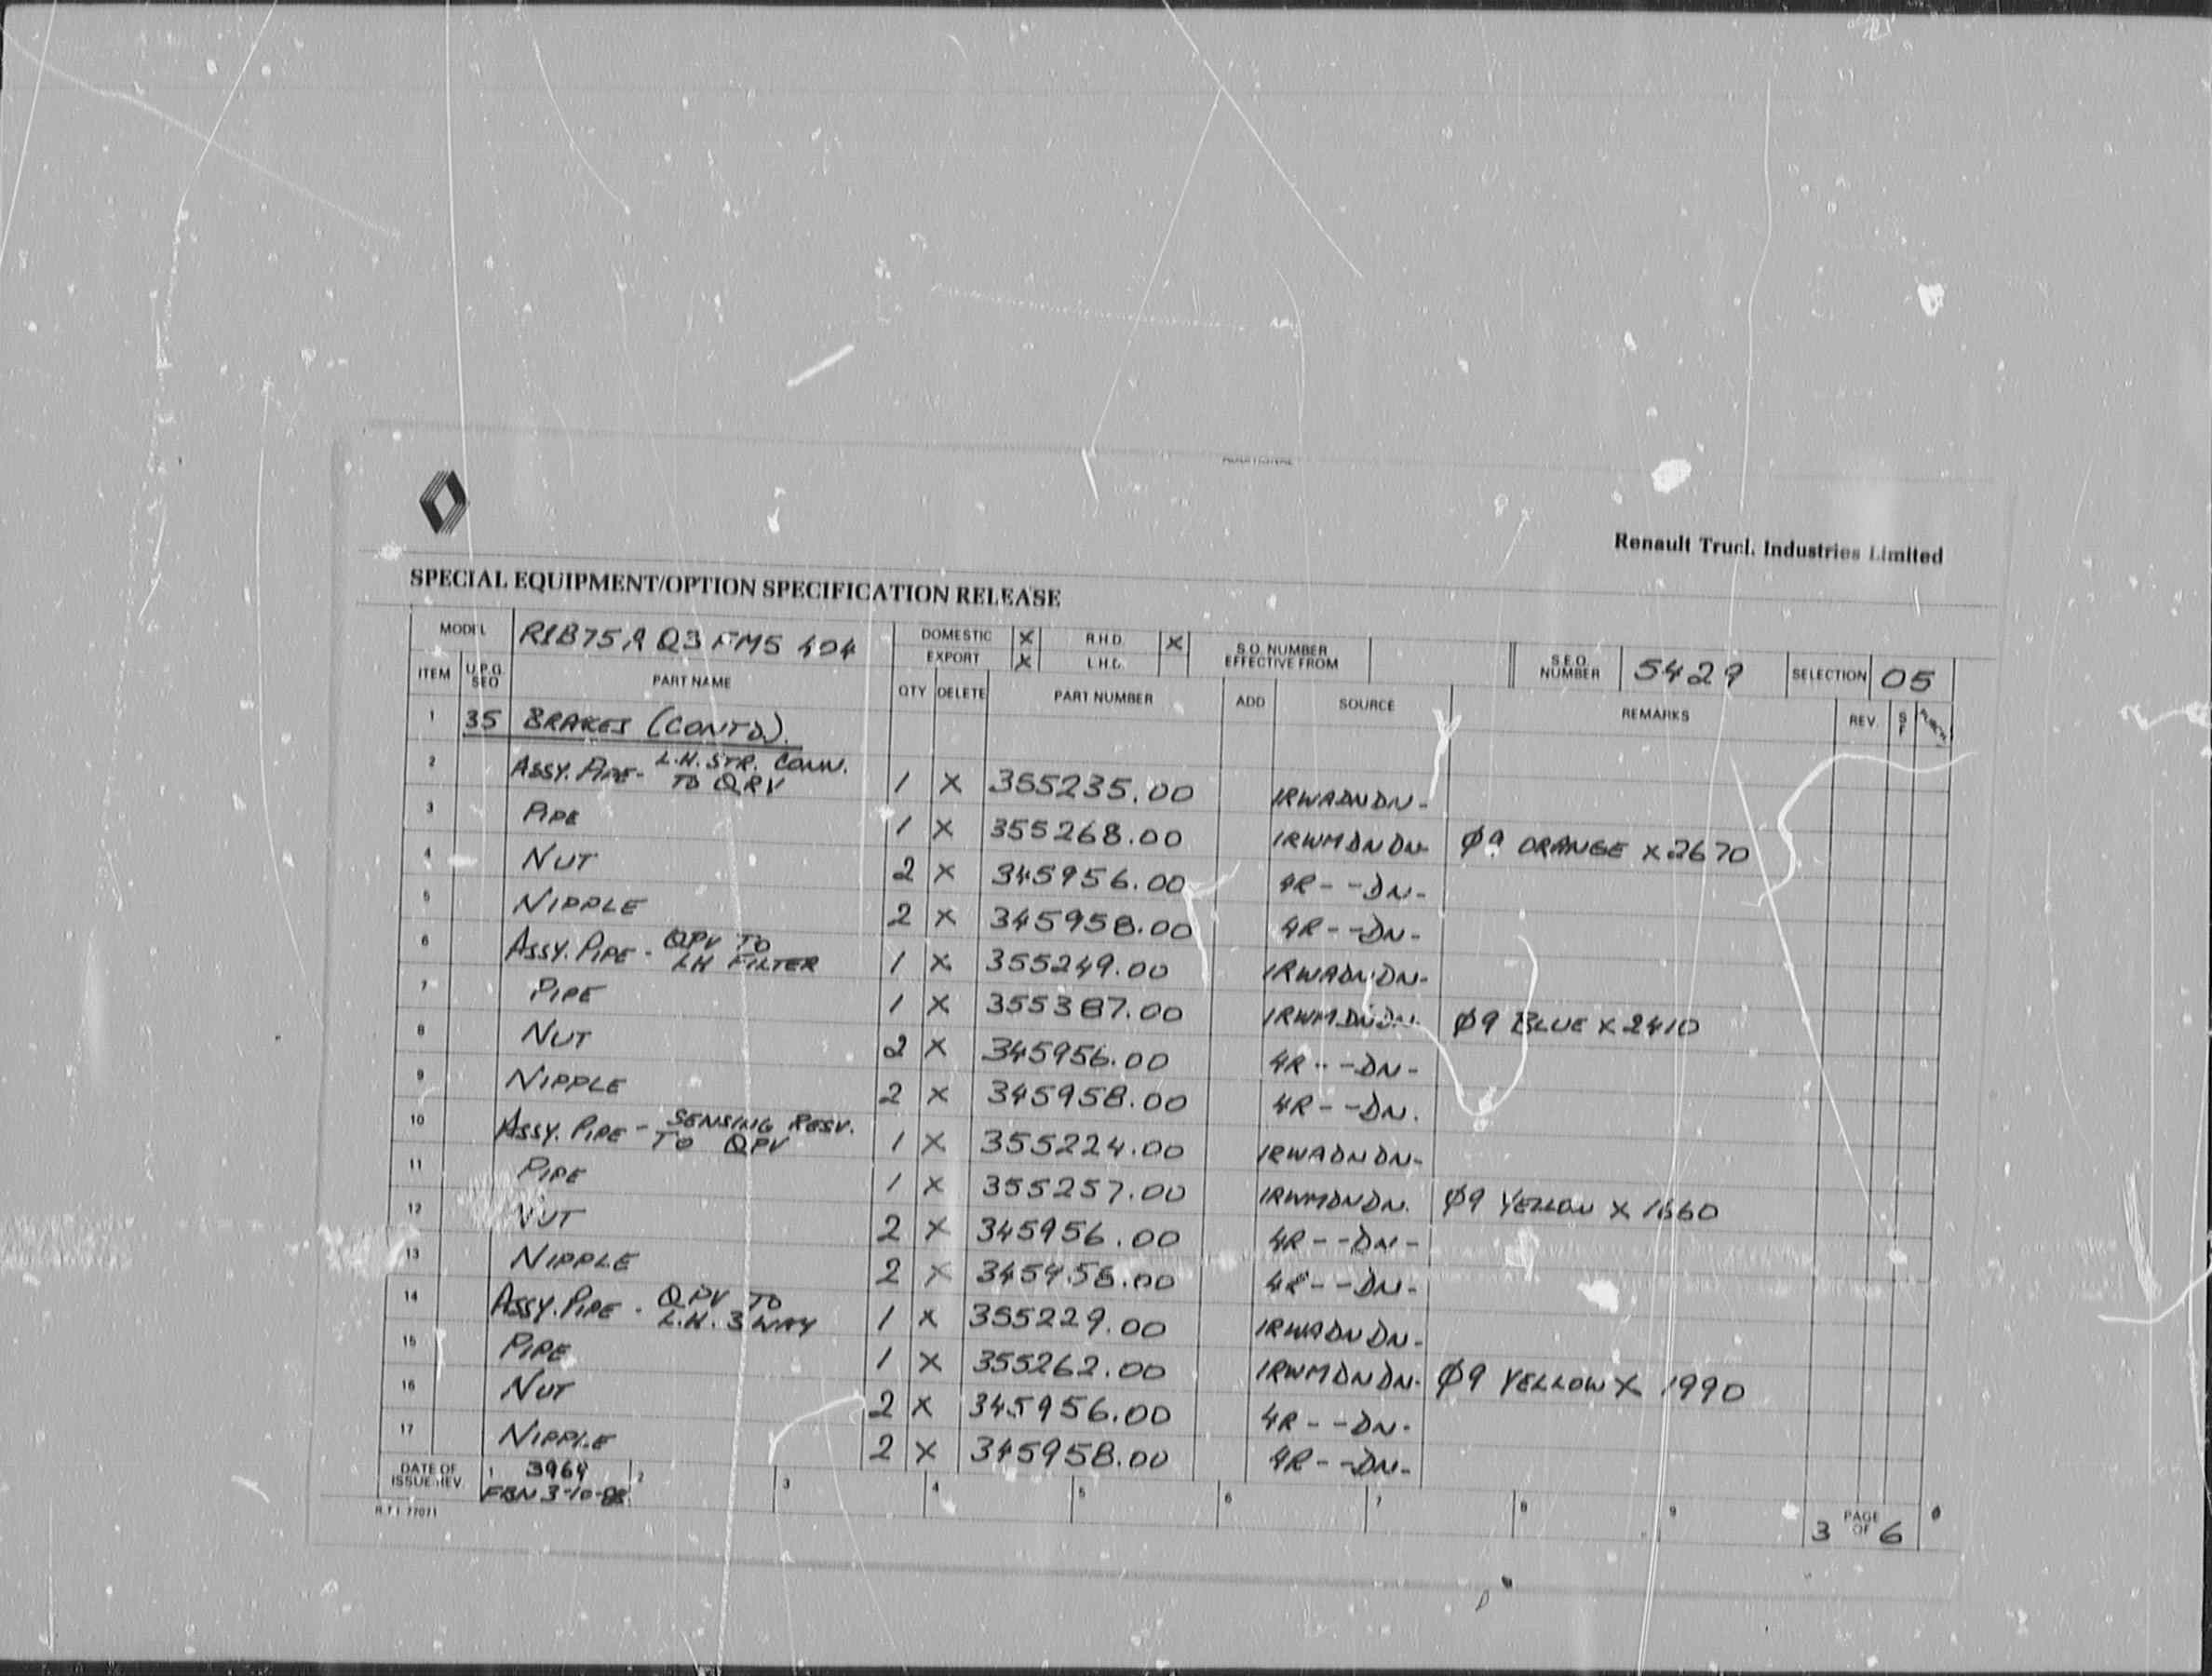 Renault Truck Industries Limited
SPECIAL EQUIPMENT/OPTION SPECIFICATION RELEASE
MODEL R1B75A Q3 FM5 404 DOMESTIC X R.H.D. X S.O. NUMBER EFFECTIVE FROM S.E.O. NUMBER 5429 SELECTION 05
EXPORT X L.H.D.
ITEM U.P.G. SEQ PART NAME QTY DELETE PART NUMBER ADD SOURCE REMARKS REV. S F
1 35 BRAKES (CONTD).
2 ASSY. PIPE - L.H. STR. CONN. TO QRV 1 X 355235.00 1RWADNDN-
3 PIPE 1 X 355268.00 1RWMDNDN- Ø9 ORANGE X 2670
4 NUT 2 X 345956.00 4R--DN-
5 NIPPLE 2 X 345958.00 4R--DN-
6 ASSY. PIPE - QPV TO LH FILTER 1 X 355249.00 1RWADNDN-
7 PIPE 1 X 355387.00 1RWMDNDN- Ø9 BLUE X 2410
8 NUT 2 X 345956.00 4R---DN-
9 NIPPLE 2 X 345958.00 4R--DN.
10 ASSY. PIPE - SENSING RESV. TO QPV 1 X 355224.00 1RWADNDN-
11 PIPE 1 X 355257.00 1RWMDNDN. Ø9 YELLOW X 1660
12 NUT 2 X 345956.00 4R--DN-
13 NIPPLE 2 X 345958.00 4R--DN-
14 ASSY. PIPE - QPV TO L.H. 3 WAY 1 X 355229.00 1RWADNDN-
15 PIPE 1 X 355262.00 1RWMDNDN. Ø9 YELLOW X 1990
16 NUT 2 X 345956.00 4R--DN-
17 NIPPLE 2 X 345958.00 4R--DN-
DATE OF ISSUE REV. 1 3964 2 3 4 5 6 7 8 9
FBN 3-10-88
3 PAGE OF 6
R.T.I. 77071